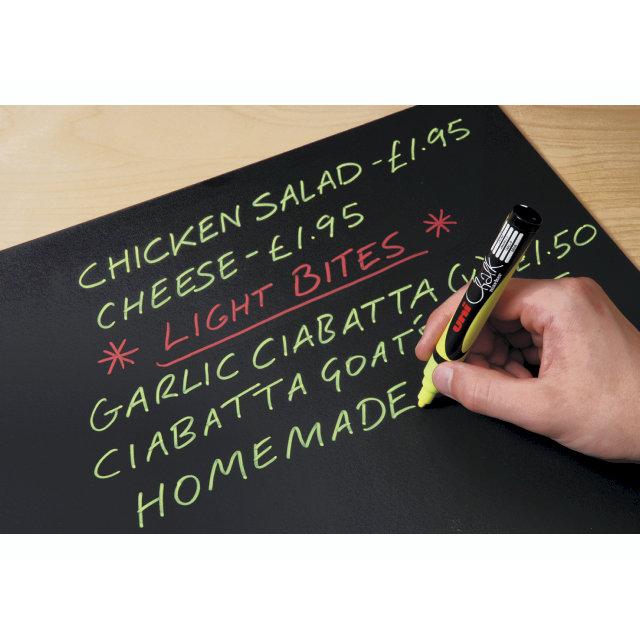 CHICKEN SALAD - £1.95
CHEESE - £1.95
* LIGHT BITES *
GARLIC CIABATTA (V) £1.50
CIABATTA GOAT'S
HOMEMADE
uni Chalk
marker